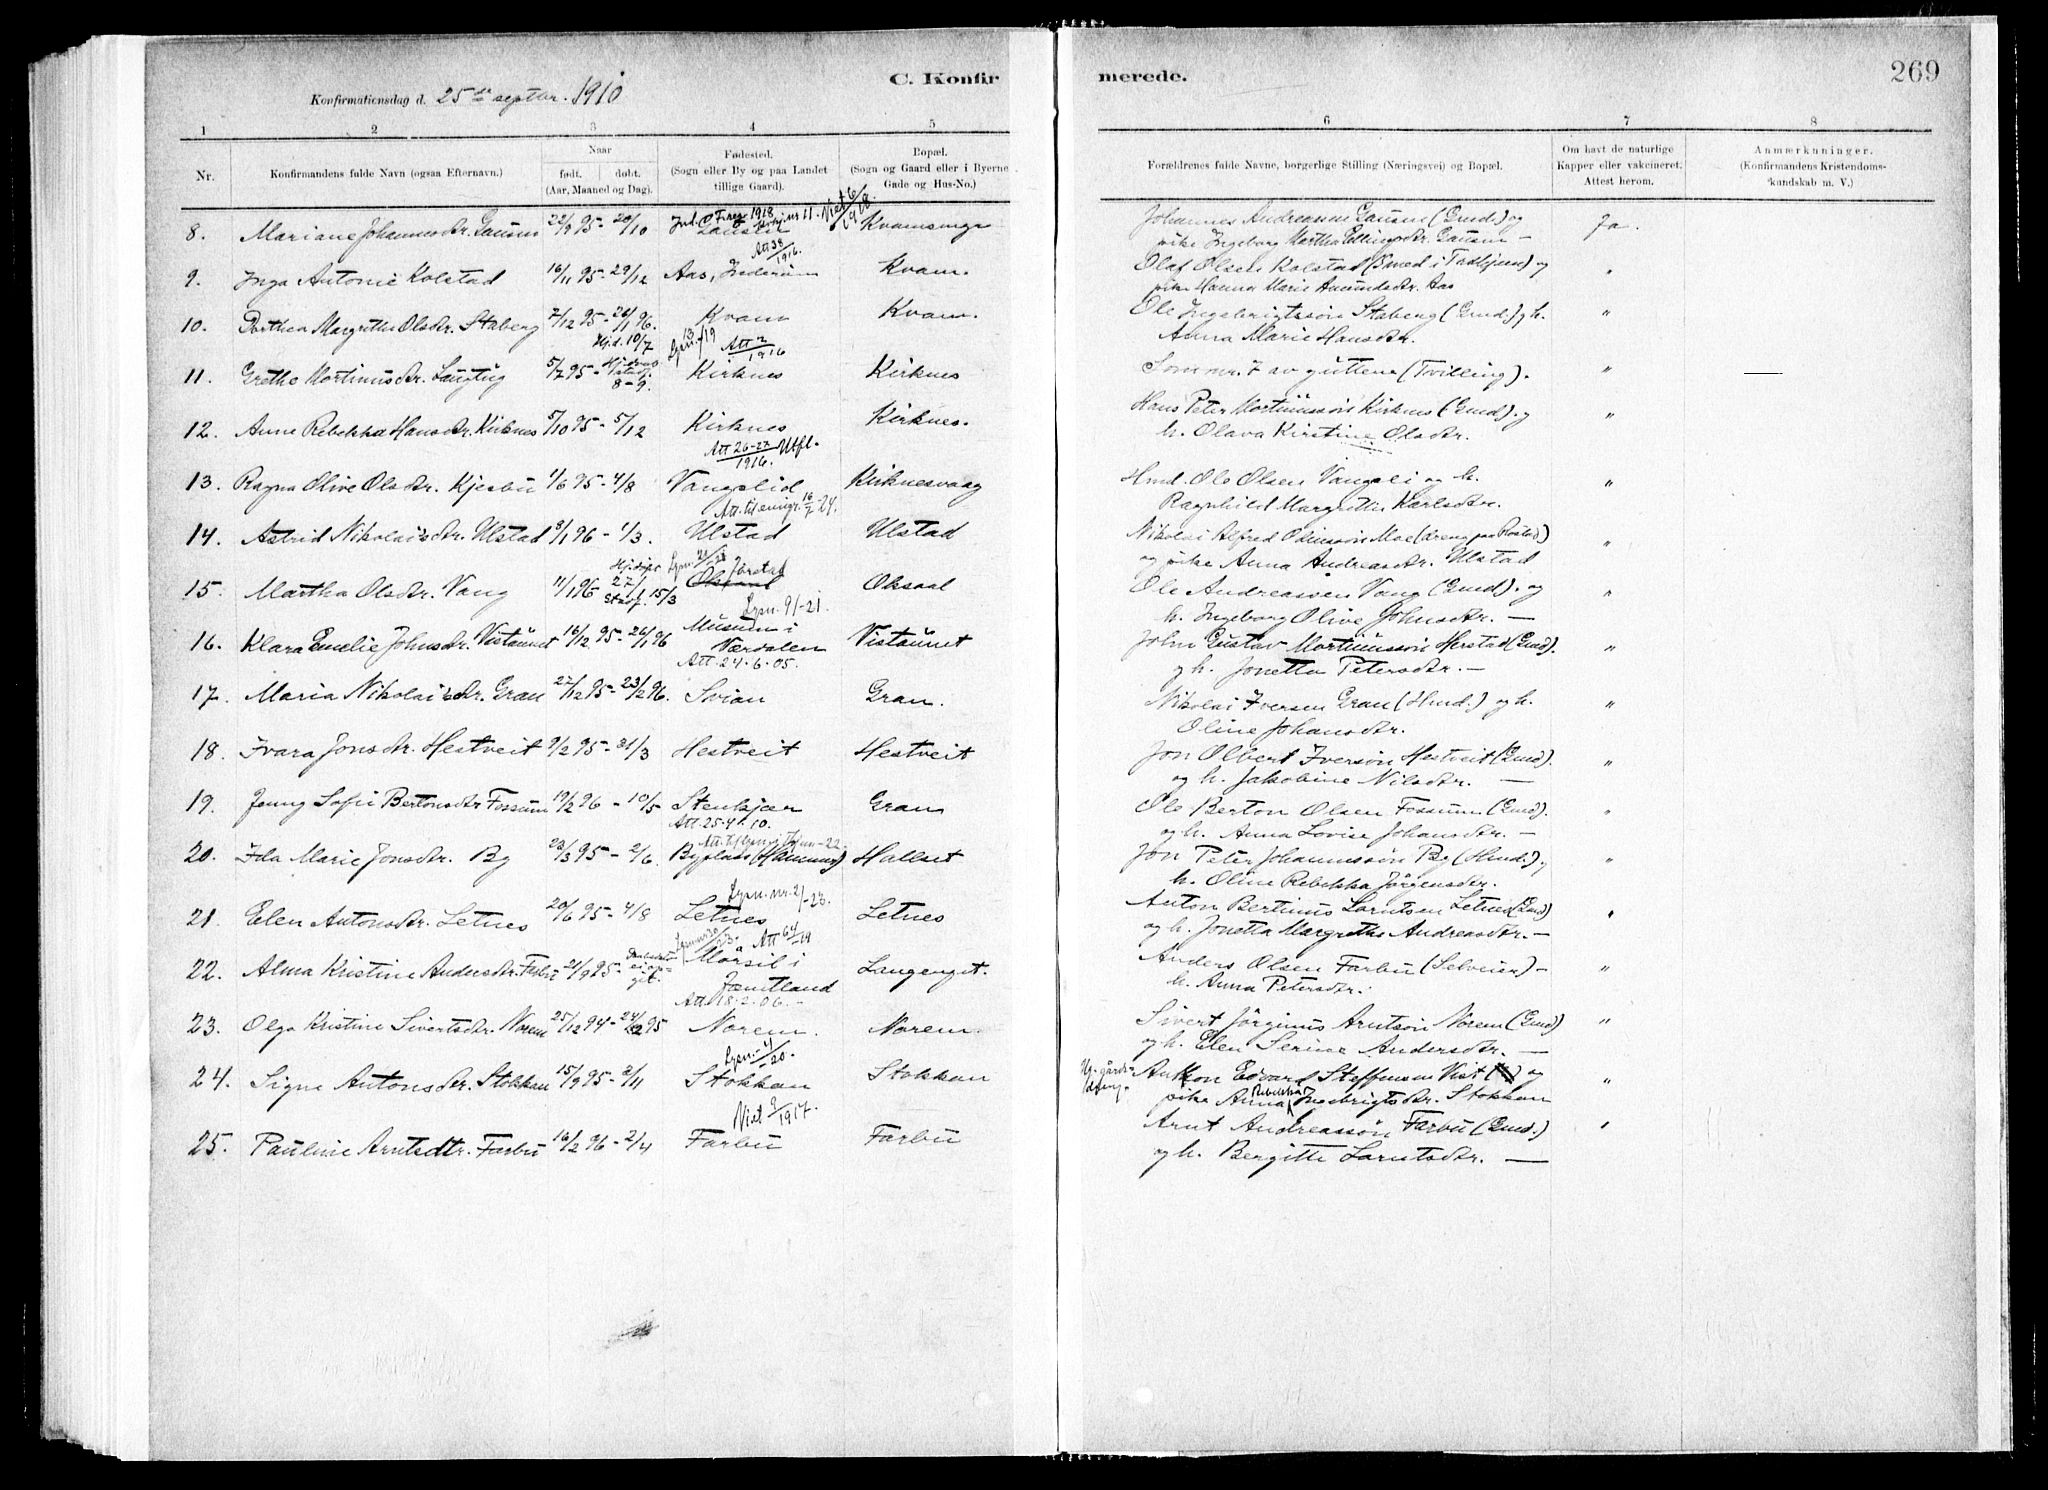 C. Konfir
merede.
269
Konfirmationsdag d. 25de septbr. 1910
1 2 3 4 5 6 7 8
Nr.
Konfirmandens fulde Navn (ogsaa Efternavn.)
Naar
født. døbt.
(Aar, Maaned og Dag).
Fødested.
(Sogn eller By og paa Landet
tillige Gaard).
Bopæl.
(Sogn og Gaard eller i Byerne
Gade og Hus-No.)
Forældrenes fulde Navne, borgerlige Stilling (Næringsvei) og Bopæl.
Om havt de naturlige
Kapper eller vakcineret.
Attest herom.
Anmærkninger.
(Konfirmandens Kristendoms-
kundskab m. V.)
8. Mariane Johannesdr. Gausen 22/9 95 - 20/10 Kvamsvage Johannes Andreassen Gausen (Gmd.) og Ja.
pike Ingeborg Martha Ellingsdr. Gausen —
Att 38/1916.
9. Inga Antonie Kolstad 16/11 95 - 29/12 Aas, Inderøen Kvam. Olaf Olsen Kolstad (Smed i Trondhjem) og "
pike Hanna Marie Amundsdr. Aas
10. Dorthea Margrethe Olsdr. Staberg 7/12 95 - 26/1 96. Kvam Kvam. Ole Ingebrigtssøn Staberg (Gmd.) og h. "
Anna Marie Hansdr.
Hjd. 10/7 Att 2/1916
11. Grethe Mortinusdr. Langtug 5/7 95 - 8-9. Kirknes Kirknes Som nr. 7 av guttene (Tvilling). "
12. Anne Rebekka Hansdr. Kirknes 5/10 95 - 5/12 Kirknes Kirknes. Hans Peter Mortinussøn Kirknes (Gmd). og "
h. Olava Kirstine Olsdr.
Att 26-27/1916. Utfl.
13. Ragna Olive Olsdr. Kjesbu 1/6 95 - 4/8 Vangslid Kirknesvaag Hmd. Ole Olsen Vangsli og h. "
Ragnhild Margrethe Karlsdr.
Att. til emigr. 16/7-24.
14. Astrid Nikolaisdr. Ulstad 8/1 96 - 1/3. Ulstad Ulstad Nikolai Alfred Odinssøn Moe "
og pike Anna Andreasdr. Ulstad
15. Martha Olsdr. Vang 11/1 96 - 27/1 15/3 Oksaal Jørstad Oksaal Ole Andreassen Vang (Gmd). og "
h. Ingeborg Olive Johnsdr. —
Lysn. 9/-21.
16. Klara Emelie Johnsdr. Vistaunet 16/12 95 - 26/1 96 Musum i Vistaunet John Gustav Mortinussøn Herstad (Gmd). "
Værdalen og h. Jonetta Petersdr. —
Att. 24.6.05.
17. Maria Nikolaisdr. Gran 27/12 95 - 23/2 96. Svian Gran. Nikolai Iversen Gran (Hmd.) og h. "
Oline Johansdr.
18. Ivara Jonsdr. Hestveit 9/2 95 - 31/3 Hestveit Hestveit Jon Olbert Iversøn Hestveit (Gmd). "
og h. Jakobine Nilsdr. —
19. Jenny Sofie Bertonsdr. Fossum 19/2 96 - 10/5 Stenkjær Gran Ole Berton Olsen Fossum (Gmd). "
Att. 25.4.10. og h. Anna Lovise Johansdr. —
20. Ida Marie Jonsdr. By 23/3 95 - 2/6. Byplads (Hammer) Hallset Jon Peter Johannessøn By (Hmd.) og "
h. Oline Rebekka Jørgensdr.
Lysn. nr. 2/-23.
21. Elen Antonsdr. Letnes 20/6 95 - 4/8 Letnes Letnes Anton Bertinus Larntsen Letnes (Gmd) "
og h. Jonetta Margrethe Andreasdr. —
Att 64/19
22. Alma Kristine Andersdr. Farbu 21/9 95 - Mørsil i Langenget. Anders Olsen Farbu (Selveier) — "
Jæmtland h. Anna Petersdr.
Att. 18.2.06. —
23. Olga Kristine Sivertsdr. Norem 25/12 94 - 24/2 95 Norem. Norem. Sivert Jørginus Arntsøn Norem (Gmd) "
og h. Elen Serine Andersdr. —
Lysn. 4/20.
24. Signe Antonsdr. Stokkan 15/9 95 - 2/11 Stokkan Stokkan Anton Edvard Steffensen Vist og "
pike Anna Rebekka Ingebrigtsdr. Stokkan
Viet 9/1917.
25. Pauline Arntsdtr. Farbu 16/2 96 - 2/4 Farbu Farbu Arnt Andreassøn Farbu (Gmd.) "
og h. Bergitte Larntsdr. —